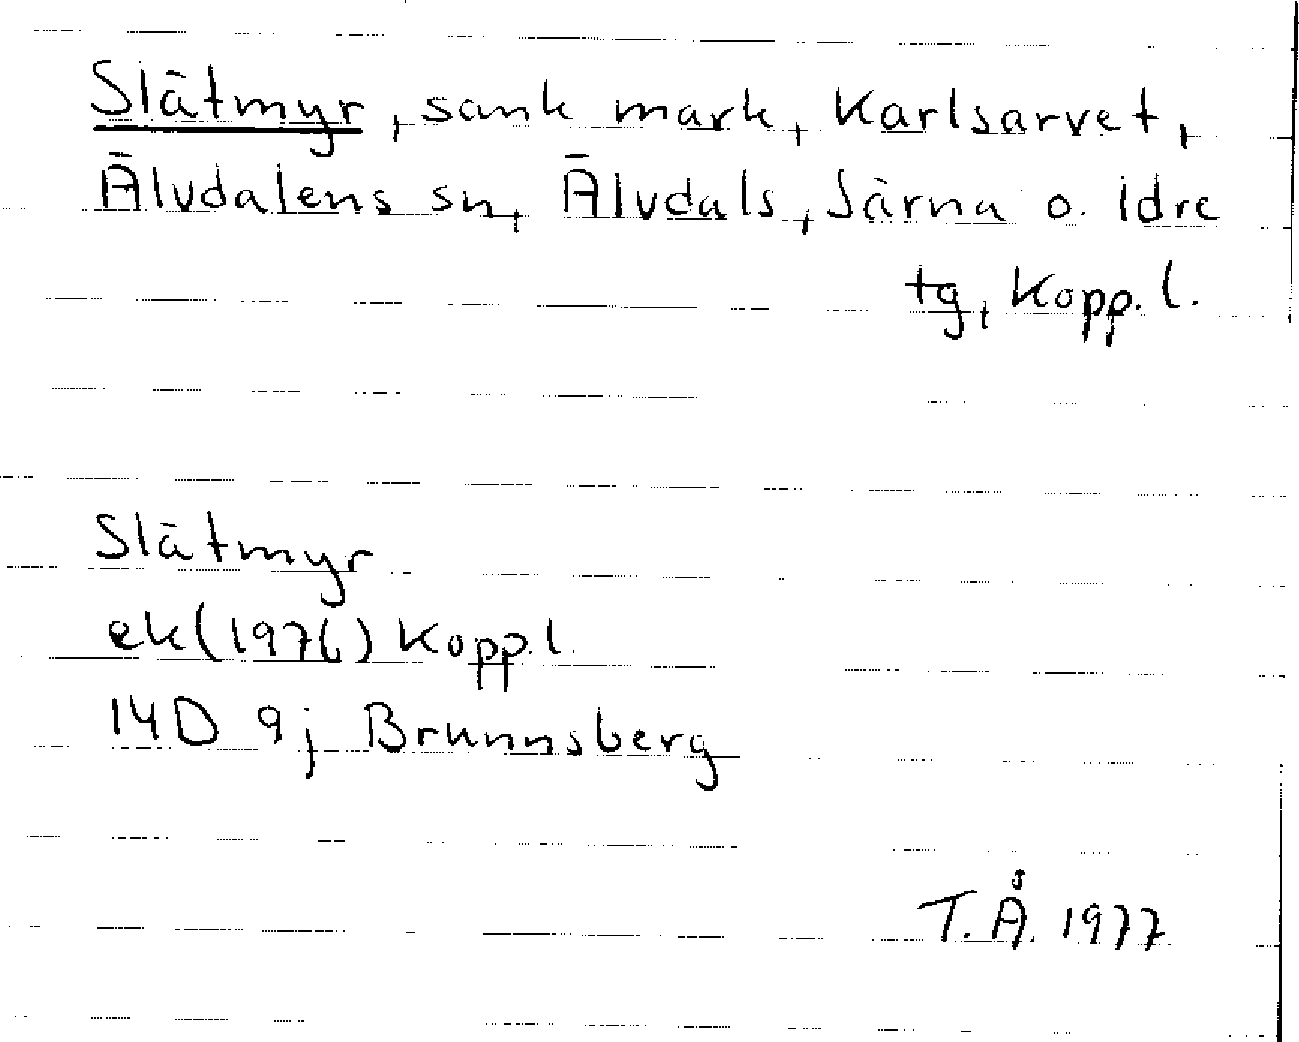 Slätmyr, sank mark, Karlsarvet,
Älvdalens sn, Älvdals, Särna o. Idre
tg, Kopp. l.
Slätmyr
ek (1976) Kopp. l.
14D 9j Brunnsberg
T.Å. 1977